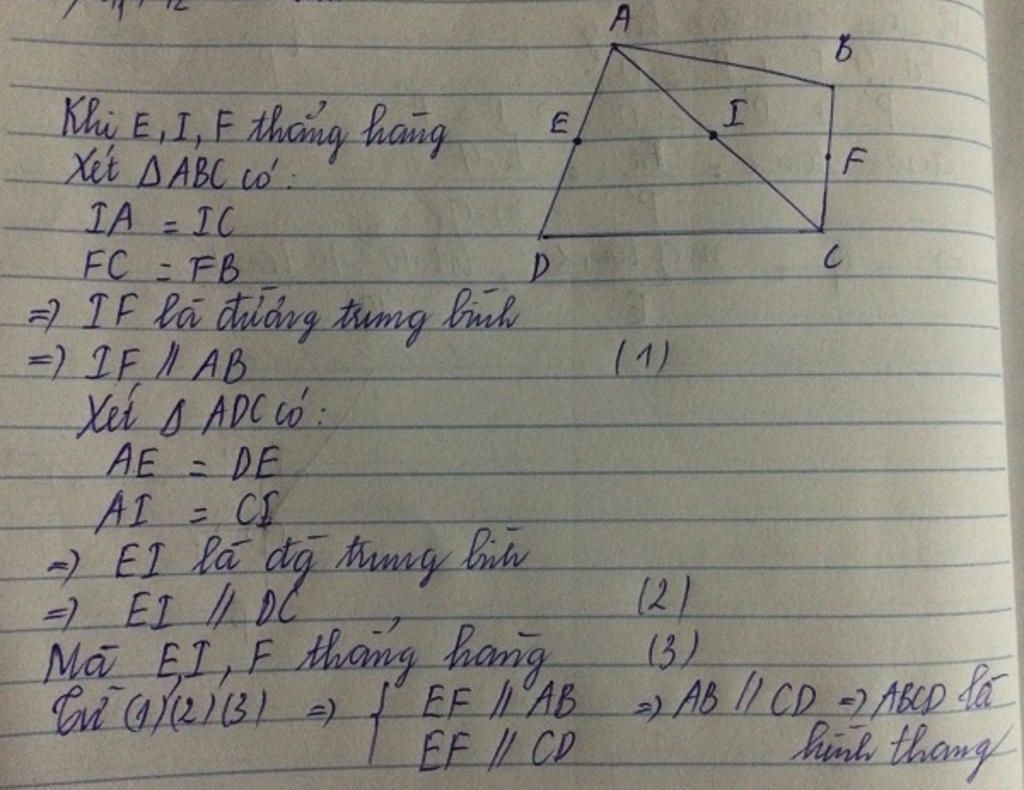 A
B
E
I
F
D
C
Khi E, I, F thẳng hàng
Xét ΔABC có:
IA = IC
FC = FB
=> IF là đường trung bình
=> IF // AB (1)
Xét Δ ADC có:
AE = DE
AI = CI
=> EI là đg trung bình
=> EI // DC (2)
Mà E, I, F thẳng hàng (3)
Từ (1)(2)(3) => { EF // AB => AB // CD => ABCD là
EF // CD hình thang